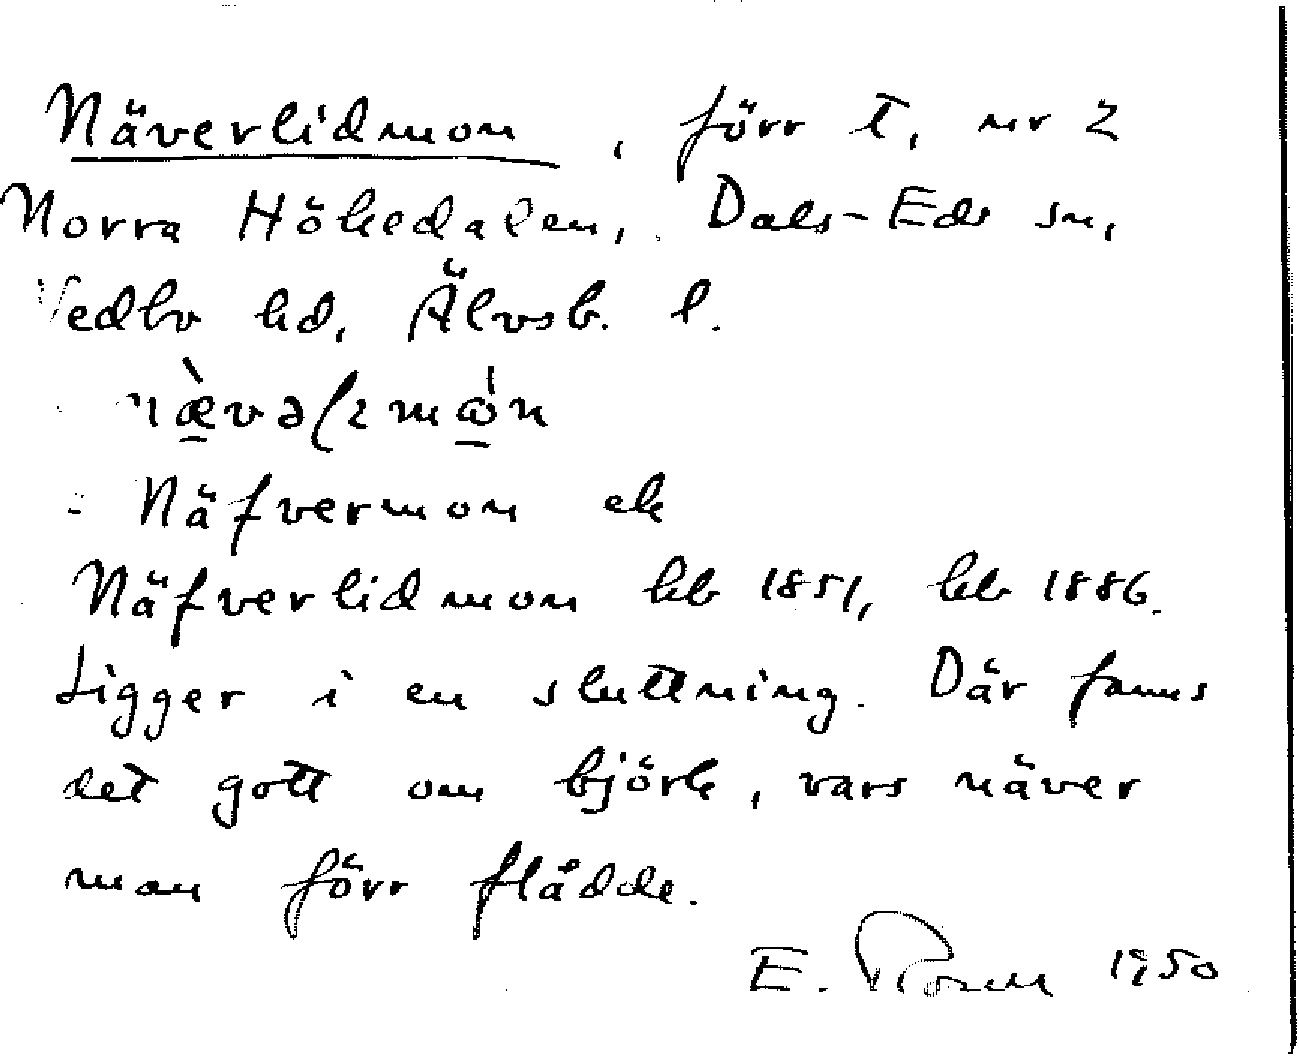 Näverlidmon, förr t, nr 2
Norra Hökedalen, Dals-Eds sn,
Vedbo hd, Älvsb. l.
Näfvermon ek
Näfverlidmon kb 1851, kb 1886.
Ligger i en sluttning. Där fanns
det gott om björk, vars näver
man förr flådde.
E. 1950